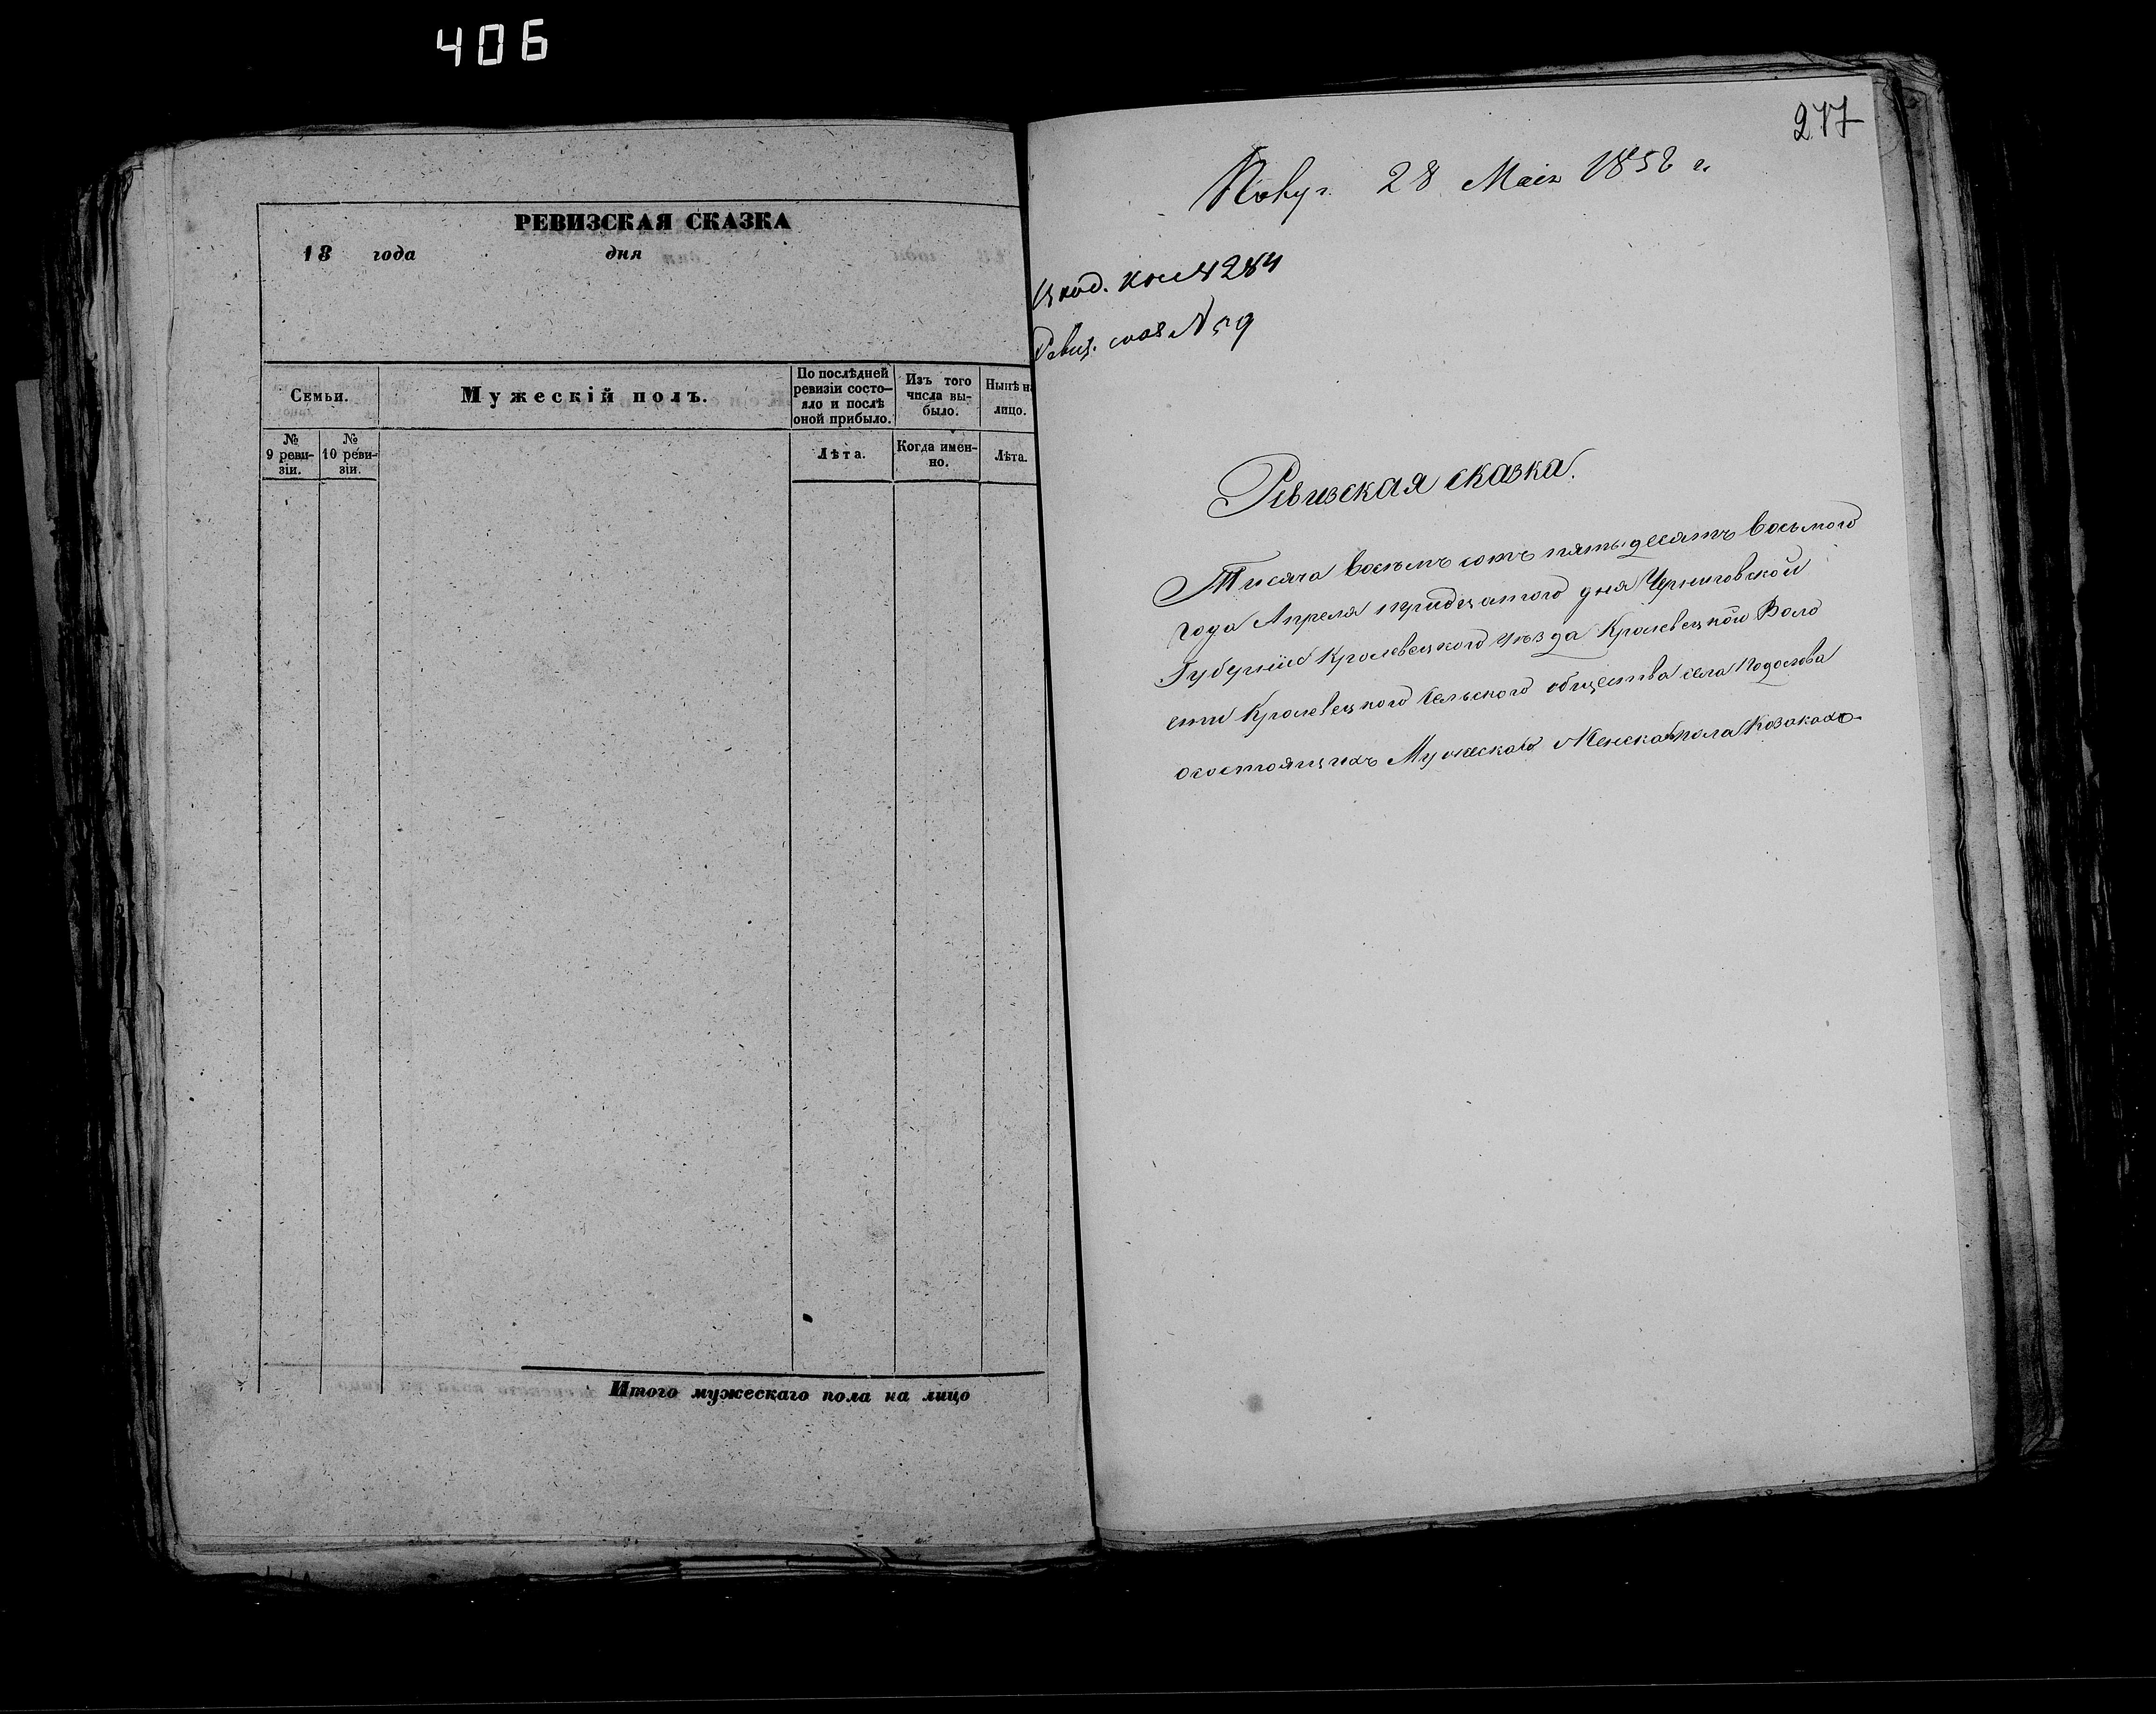 406
РЕВИЗСКАЯ СКАЗКА
18 года дня
Семьи.
Мужескій полъ.
По послѣдней
ревизіи состо-
яло и послѣ
оной прибыло.
Изъ того
числа вы-
было.
Нынѣ на
лицо.
№
9 реви-
зіи.
№
10 реви-
зіи.
Лѣта.
Когда имен-
но.
Лѣта.
Итого мужескаго пола на лицо
277
28 Маія 1858 г.
№ 59
Ревизская сказка.
Тисяча восемъ сотъ пятьдесятъ восьмого
года Апреля тридцатого дня Черниговской
Губерніи Кролевецкого уѣзда Кролевецкой Воло
сти Кролевецкого Сельского общества села Подолова
осостоящихъ Мужеска и Женска пола Козакахъ